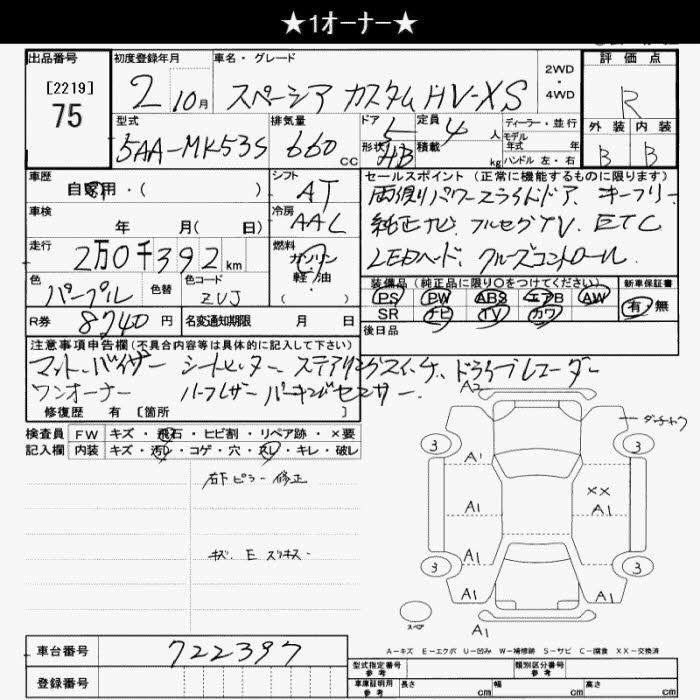 ★1オーナー★
出品番号
[2219]
75
初度登録年月
2 10月
車名・グレード
スペーシア カスタム HV-XS
2WD
・
4WD
評価点
R
外装 内装
B B
型式
5AA-MK53S
排気量
660 cc
ドア 5
形状 HB
定員 4 人
積載 kg
ディーラー・並行
モデル
年式 年
ハンドル 左・右
車歴
自家用・( )
シフト
AT
車検
年 月( 日)
冷房
AAC
走行
2万0千392km
燃料
ガソリン
軽・油
( )
色
パープル
色替
色コード
ZVJ
R券 8740円
名変通知期限 月 日
セールスポイント (正常に機能するものに限ります)
両側パワースライドドア、キーフリー
純正ナビ、フルセグTV、ETC
LEDヘッド、クルーズコントロール
装備品(純正品に限り○をつけてください)
PS PW ABS エアB AW
SR ナビ TV カワ
新車保証書
有・無
後日品
注意事項申告欄(不具合内容等は具体的に記入して下さい)
マット・バイザー シートヒーター ステアリングスイッチ、ドライブレコーダー
ワンオーナー パーキングセンサー.
修復歴 有 [箇所 ]
検査員
記入欄
FW キズ・飛石・ヒビ割・リペア跡・×要
内装 キズ・汚レ・コゲ・穴・スレ・キレ・破レ
右F ピラー 修正
キズ. E スリキズ
A2
3 3
A1
XX
A1
A1
A1 A1
3 3
A1 A1
スペア
A1
A-キズ E-エクボ U-凹み W-補修跡 S-サビ C-腐食 XX-交換済
車台番号 722397
登録番号
型式指定番号
参考
類別区分番号
参考
車庫証明用
参考
長さ cm 幅 cm 高さ cm